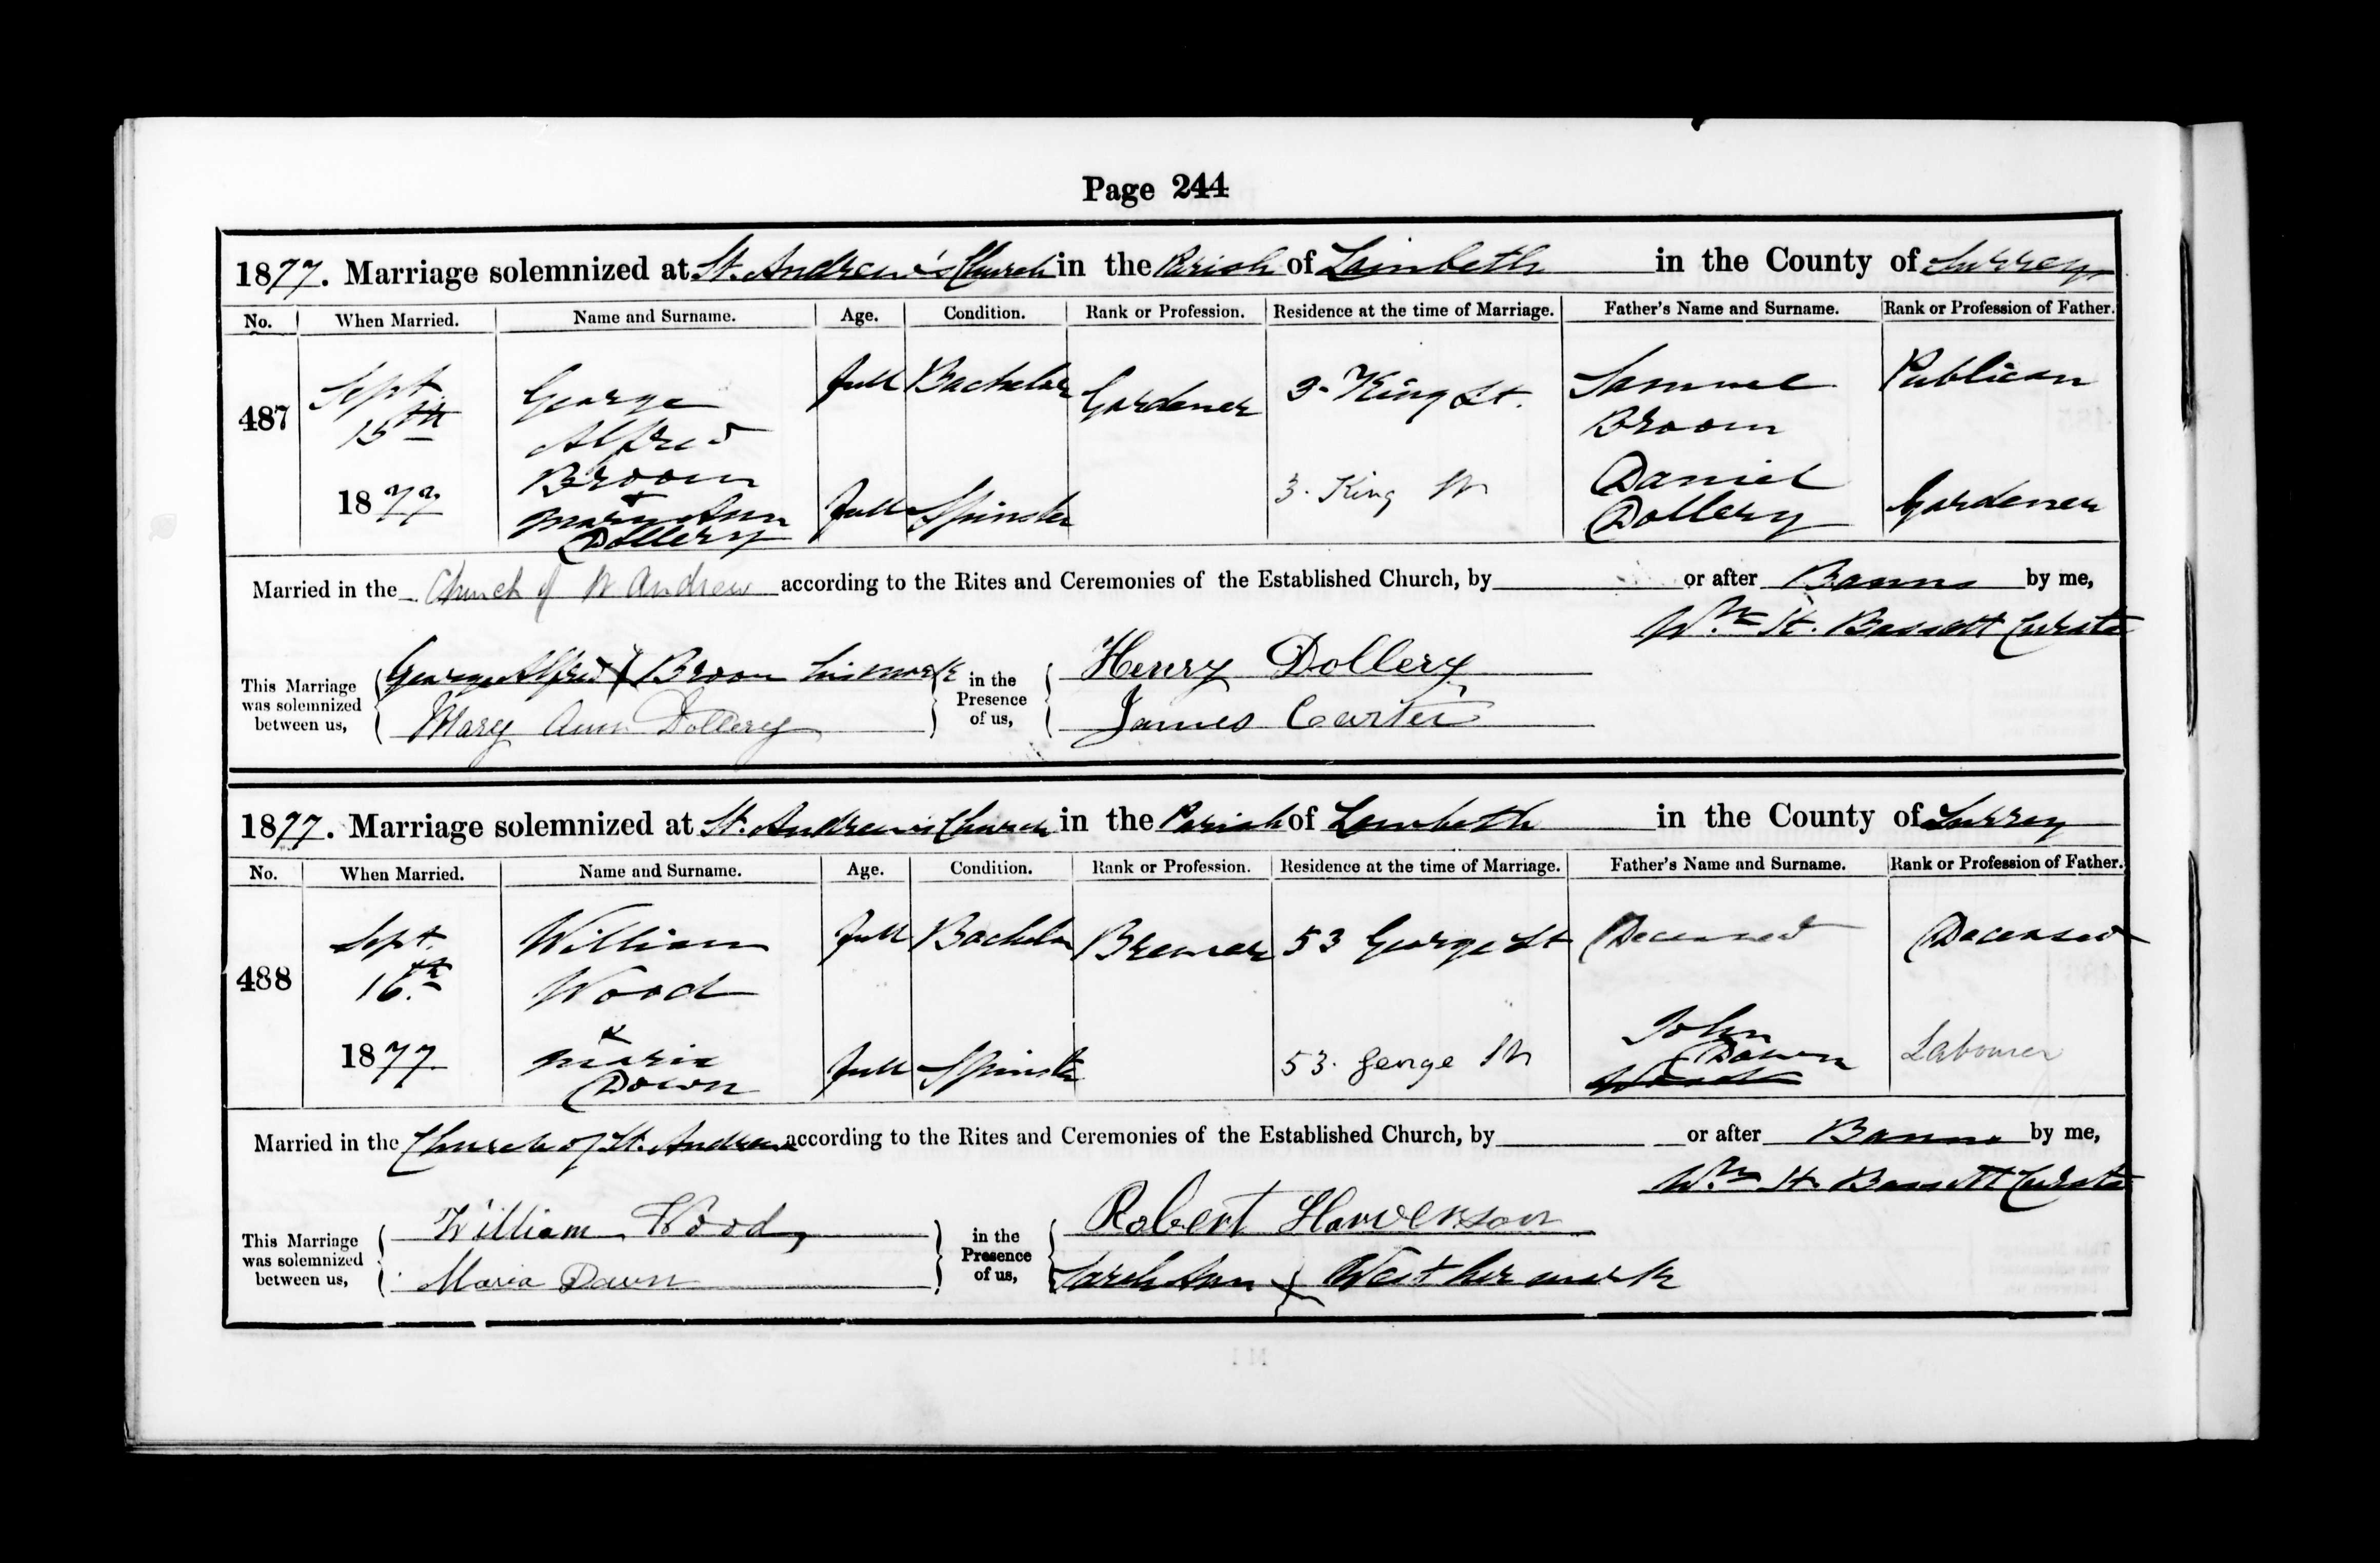 Page 244
1877. Marriage solemnized at St. Andrew's Church in the Parish of Lambeth in the County of Surrey
No. When Married. Name and Surname. Age. Condition. Rank or Profession. Residence at the time of Marriage. Father's Name and Surname. Rank or Profession of Father.
487 Sept 15th 1877 George Alfred Broom full Bachelor Gardener 3. King St. Samuel Broom Publican
& Mary Ann Dollery full Spinster 3. King St Daniel Dollery Gardener
Married in the Church of St Andrew according to the Rites and Ceremonies of the Established Church, by or after Banns by me,
Wm H. Bassett Curate
This Marriage was solemnized between us, George Alfred X Broom his mark in the Presence of us, Henry Dollery
Mary Ann Dollery James Carter
1877. Marriage solemnized at St. Andrew's Church in the Parish of Lambeth in the County of Surrey
No. When Married. Name and Surname. Age. Condition. Rank or Profession. Residence at the time of Marriage. Father's Name and Surname. Rank or Profession of Father.
488 Sept. 16th 1877 William Wood full Bachelor Brewer 53 George St Deceased Deceased
& Maria Down full Spinster 53. George St John Down Labourer
Married in the Church of St. Andrew according to the Rites and Ceremonies of the Established Church, by or after Banns by me,
Wm H. Bassett Curate
This Marriage was solemnized between us, William Wood in the Presence of us, Robert
Maria Down Sarah Ann X West her mark